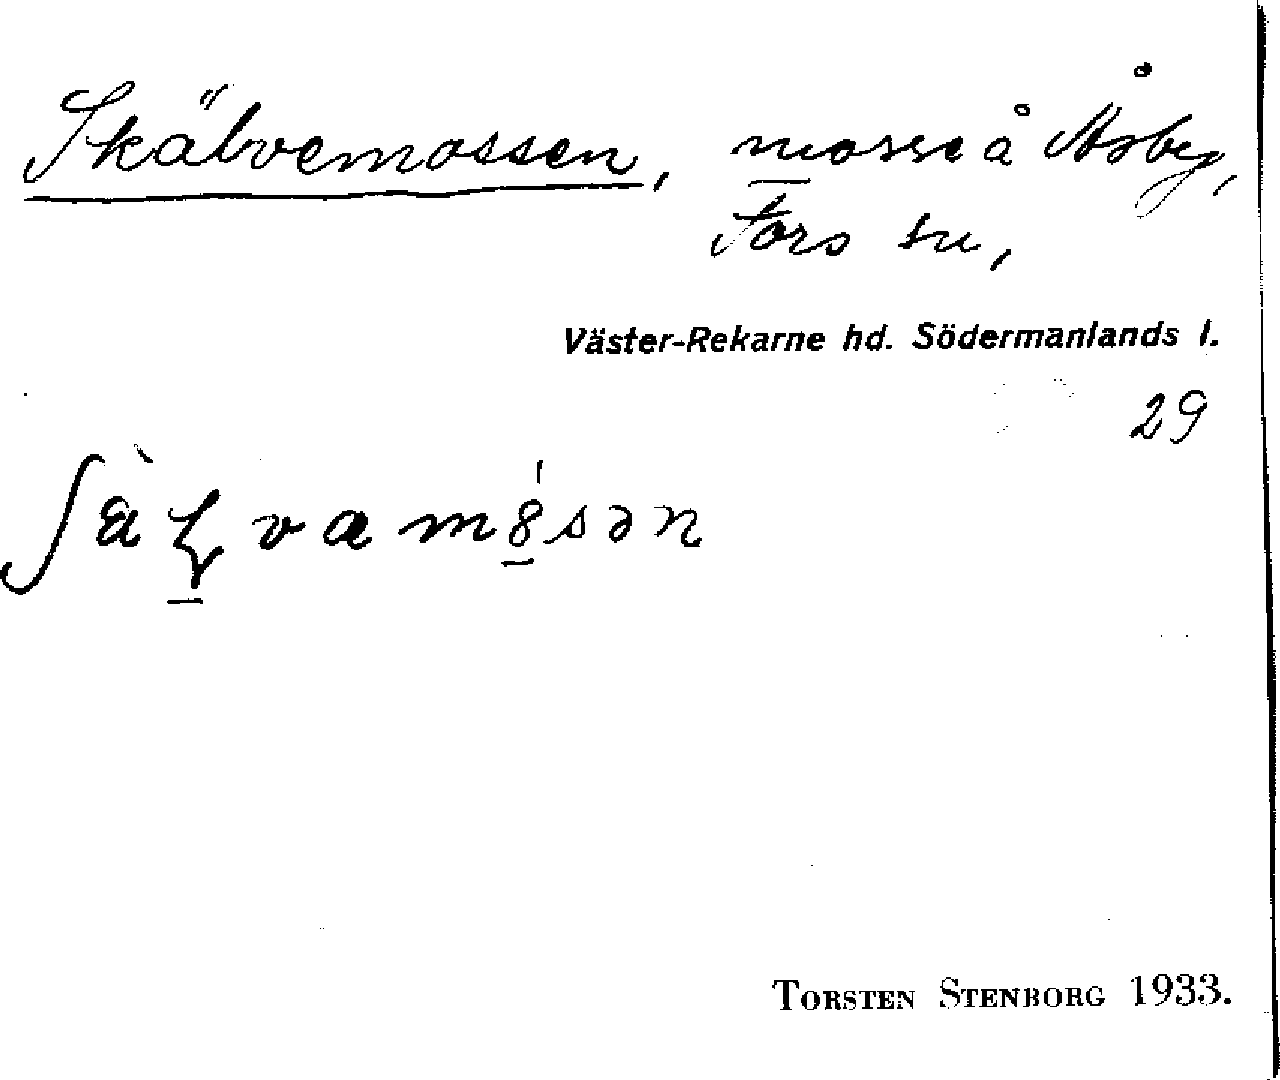 Skälvemossen, mosse å Åsby,
Fors sn,
Väster-Rekarne hd. Södermanlands l.
29
TORSTEN STENBORG 1933.